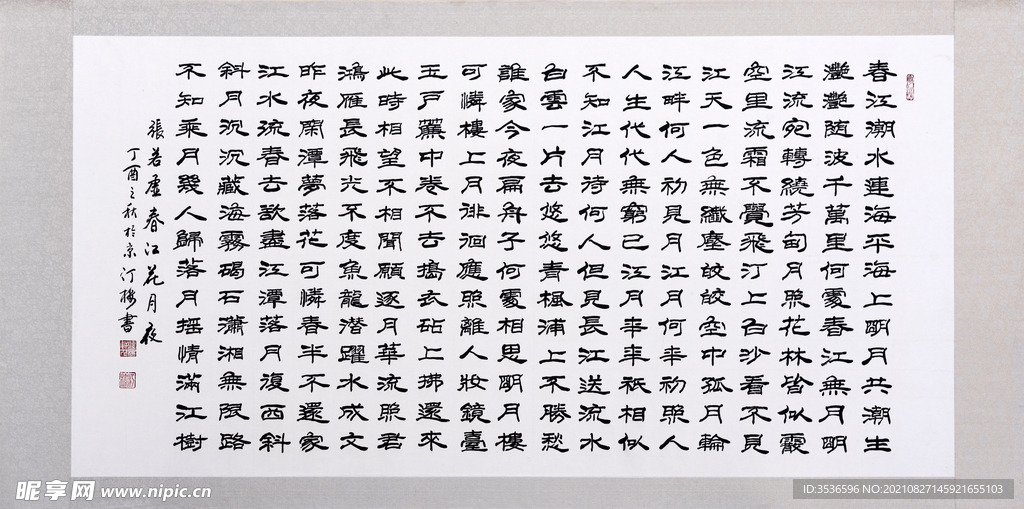 春江潮水連海平海上明月共潮生
灔灔随波千萬里何處春江無月明
江流宛轉繞芳甸月照花林皆似霰
空里流霜不覺飛汀上白沙看不見
江天一色無纖塵皎皎空中孤月輪
江畔何人初見月江月何年初照人
人生代代無窮已江月年年衹相似
不知江月待何人但見長江送流水
白雲一片去悠悠青楓浦上不勝愁
誰家今夜扁舟子何處相思明月樓
可憐樓上月徘徊應照離人妝鏡臺
玉户簾中卷不去搗衣砧上拂還來
此時相望不相聞願逐月華流照君
鴻雁長飛光不度魚龍潛躍水成文
昨夜閑潭夢落花可憐春半不還家
江水流春去欲盡江潭落月復西斜
斜月沉沉藏海霧碣石瀟湘無限路
不知乘月幾人歸落月摇情滿江樹
張若虛春江花月夜
丁酉之秋於京汀書
昵享网 www.nipic.cn
ID:3536596 NO:20210827145921655103